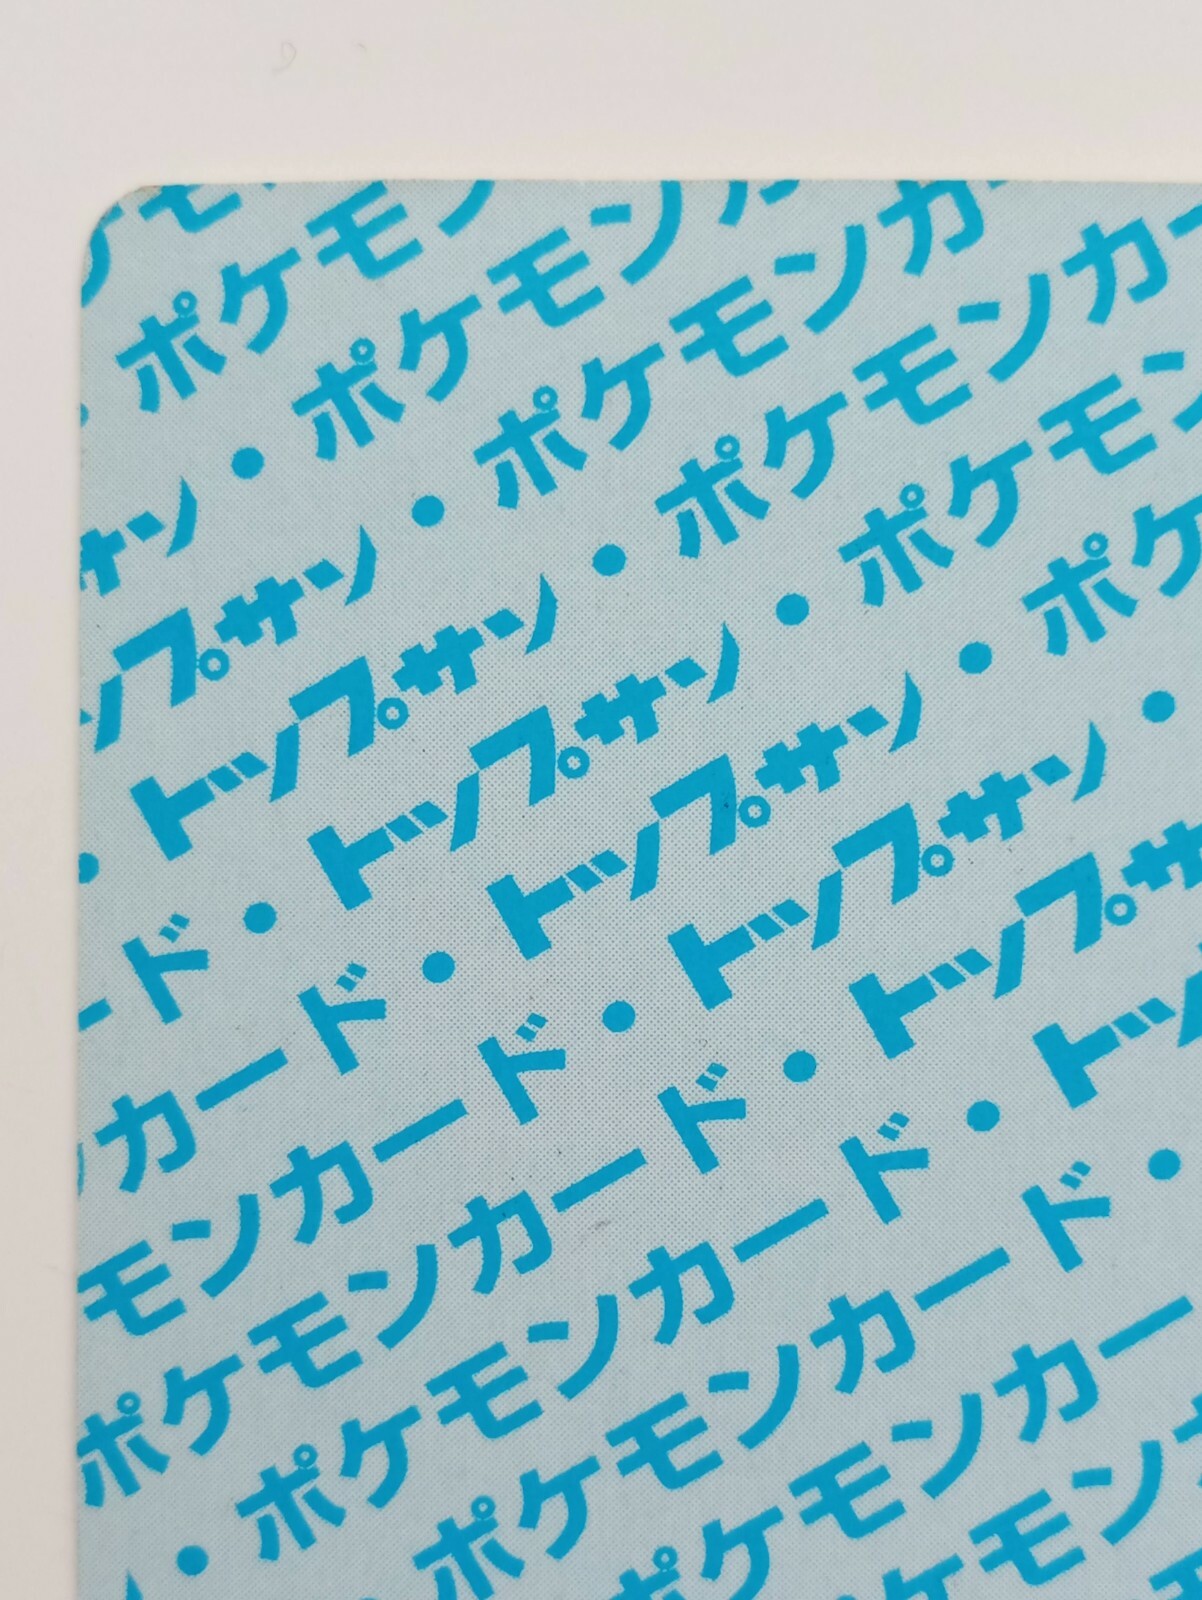 ケモ
・ポケモン
サン・ポケモンカ
ップサン・ポケモンカー
・トップサン・ポケモンカー
ード・トップサン・ポケモン
ンカード・トップサン・ポケ
モンカード・トップサン・
ポケモンカード・トップサ
ン・ポケモンカード・トッ
ポケモンカード・
ポケモンカー
ケモン